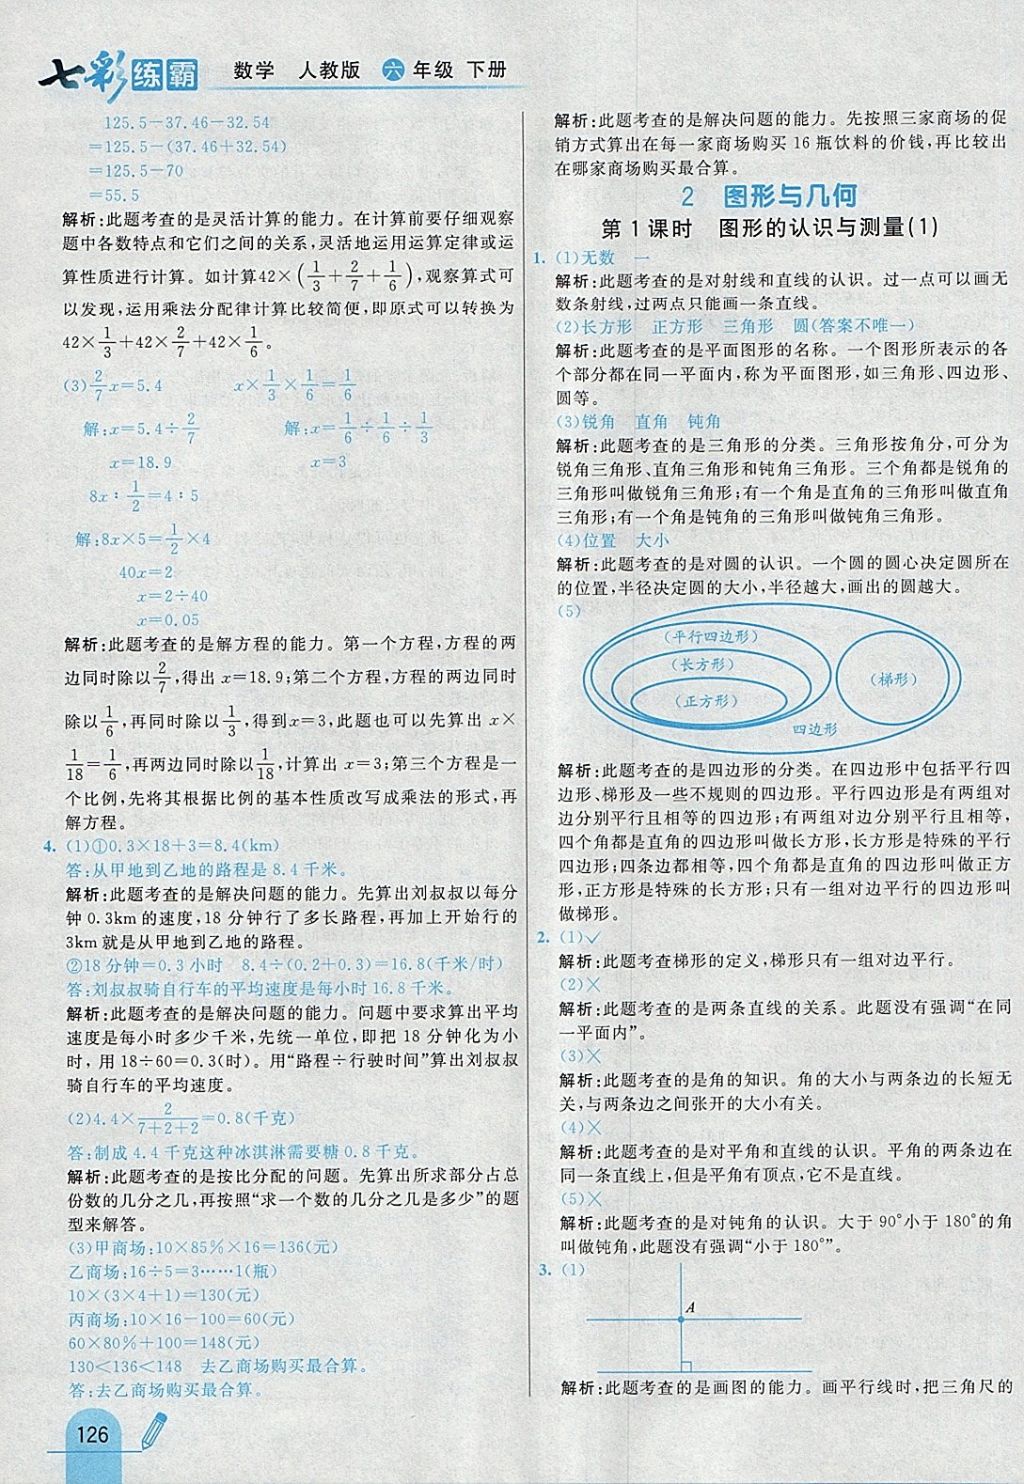 七彩练霸 数学 人教版 六年级 下册
125.5-37.46-32.54
=125.5-(37.46+32.54)
=125.5-70
=55.5
解析:此题考查的是灵活计算的能力。在计算前要仔细观察
题中各数特点和它们之间的关系,灵活地运用运算定律或运
算性质进行计算。如计算42×(1/3+2/7+1/6),观察算式可
以发现,运用乘法分配律计算比较简便,即原式可以转换为
42×1/3+42×2/7+42×1/6。
(3)2/7x=5.4 x×1/3×1/6=1/6
解:x=5.4÷2/7 解:x=1/6÷1/6÷1/3
x=18.9 x=3
8x∶1/2=4∶5
解:8x×5=1/2×4
40x=2
x=2÷40
x=0.05
解析:此题考查的是解方程的能力。第一个方程,方程的两
边同时除以2/7,得出x=18.9;第二个方程,方程的两边同时
除以1/6,再同时除以1/3,得到x=3,此题也可以先算出x×
1/18=1/6,再两边同时除以1/18,计算出x=3;第三个方程是一
个比例,先将其根据比例的基本性质改写成乘法的形式,再
解方程。
4. (1)①0.3×18+3=8.4(km)
答:从甲地到乙地的路程是8.4千米。
解析:此题考查的是解决问题的能力。先算出刘叔叔以每分
钟0.3km的速度,18分钟行了多长路程,再加上开始行的
3km就是从甲地到乙地的路程。
②18分钟=0.3小时 8.4÷(0.2+0.3)=16.8(千米/时)
答:刘叔叔骑自行车的平均速度是每小时16.8千米。
解析:此题考查的是解决问题的能力。问题中要求算出平均
速度是每小时多少千米,先统一单位,即把18分钟化为小
时,用18÷60=0.3(时)。用“路程÷行驶时间”算出刘叔叔
骑自行车的平均速度。
(2)4.4×2/(7+2+2)=0.8(千克)
答:制成4.4千克这种冰淇淋需要糖0.8千克。
解析:此题考查的是按比分配的问题。先算出所求部分占总
份数的几分之几,再按照“求一个数的几分之几是多少”的题
型来解答。
(3)甲商场:10×85%×16=136(元)
乙商场:16÷5=3……1(瓶)
10×(3×4+1)=130(元)
丙商场:10×16-100=60(元)
60×80%+100=148(元)
130<136<148 去乙商场购买最合算。
答:去乙商场购买最合算。
126
解析:此题考查的是解决问题的能力。先按照三家商场的促
销方式算出在每一家商场购买16瓶饮料的价钱,再比较出
在哪家商场购买最合算。
2 图形与几何
第1课时 图形的认识与测量(1)
1. (1)无数 一
解析:此题考查的是对射线和直线的认识。过一点可以画无
数条射线,过两点只能画一条直线。
(2)长方形 正方形 三角形 圆(答案不唯一)
解析:此题考查的是平面图形的名称。一个图形所表示的各
个部分都在同一平面内,称为平面图形,如三角形、四边形、
圆等。
(3)锐角 直角 钝角
解析:此题考查的是三角形的分类。三角形按角分,可分为
锐角三角形、直角三角形和钝角三角形。三个角都是锐角的
三角形叫做锐角三角形;有一个角是直角的三角形叫做直角
三角形;有一个角是钝角的三角形叫做钝角三角形。
(4)位置 大小
解析:此题考查的是对圆的认识。一个圆的圆心决定圆所在
的位置,半径决定圆的大小,半径越大,画出的圆越大。
(5)
(平行四边形)
(长方形)
(正方形)
(梯形)
四边形
解析:此题考查的是四边形的分类。在四边形中包括平行四
边形、梯形及一些不规则的四边形。平行四边形是有两组对
边分别平行且相等的四边形;有两组对边分别平行且相等,
四个角都是直角的四边形叫做长方形,长方形是特殊的平行
四边形;四条边都相等,四个角都是直角的四边形叫做正方
形,正方形是特殊的长方形;只有一组对边平行的四边形叫
做梯形。
2. (1)✓
解析:此题考查梯形的定义,梯形只有一组对边平行。
(2)×
解析:此题考查的是两条直线的关系。此题没有强调“在同
一平面内”。
(3)×
解析:此题考查的是角的知识。角的大小与两条边的长短无
关,与两条边之间张开的大小有关。
(4)×
解析:此题考查的是对平角和直线的认识。平角的两条边在
同一条直线上,但是平角有顶点,它不是直线。
(5)×
解析:此题考查的是对钝角的认识。大于90°小于180°的角
叫做钝角,此题没有强调“小于180°”。
3. (1)
A
解析:此题考查的是画图的能力。画平行线时,把三角尺的